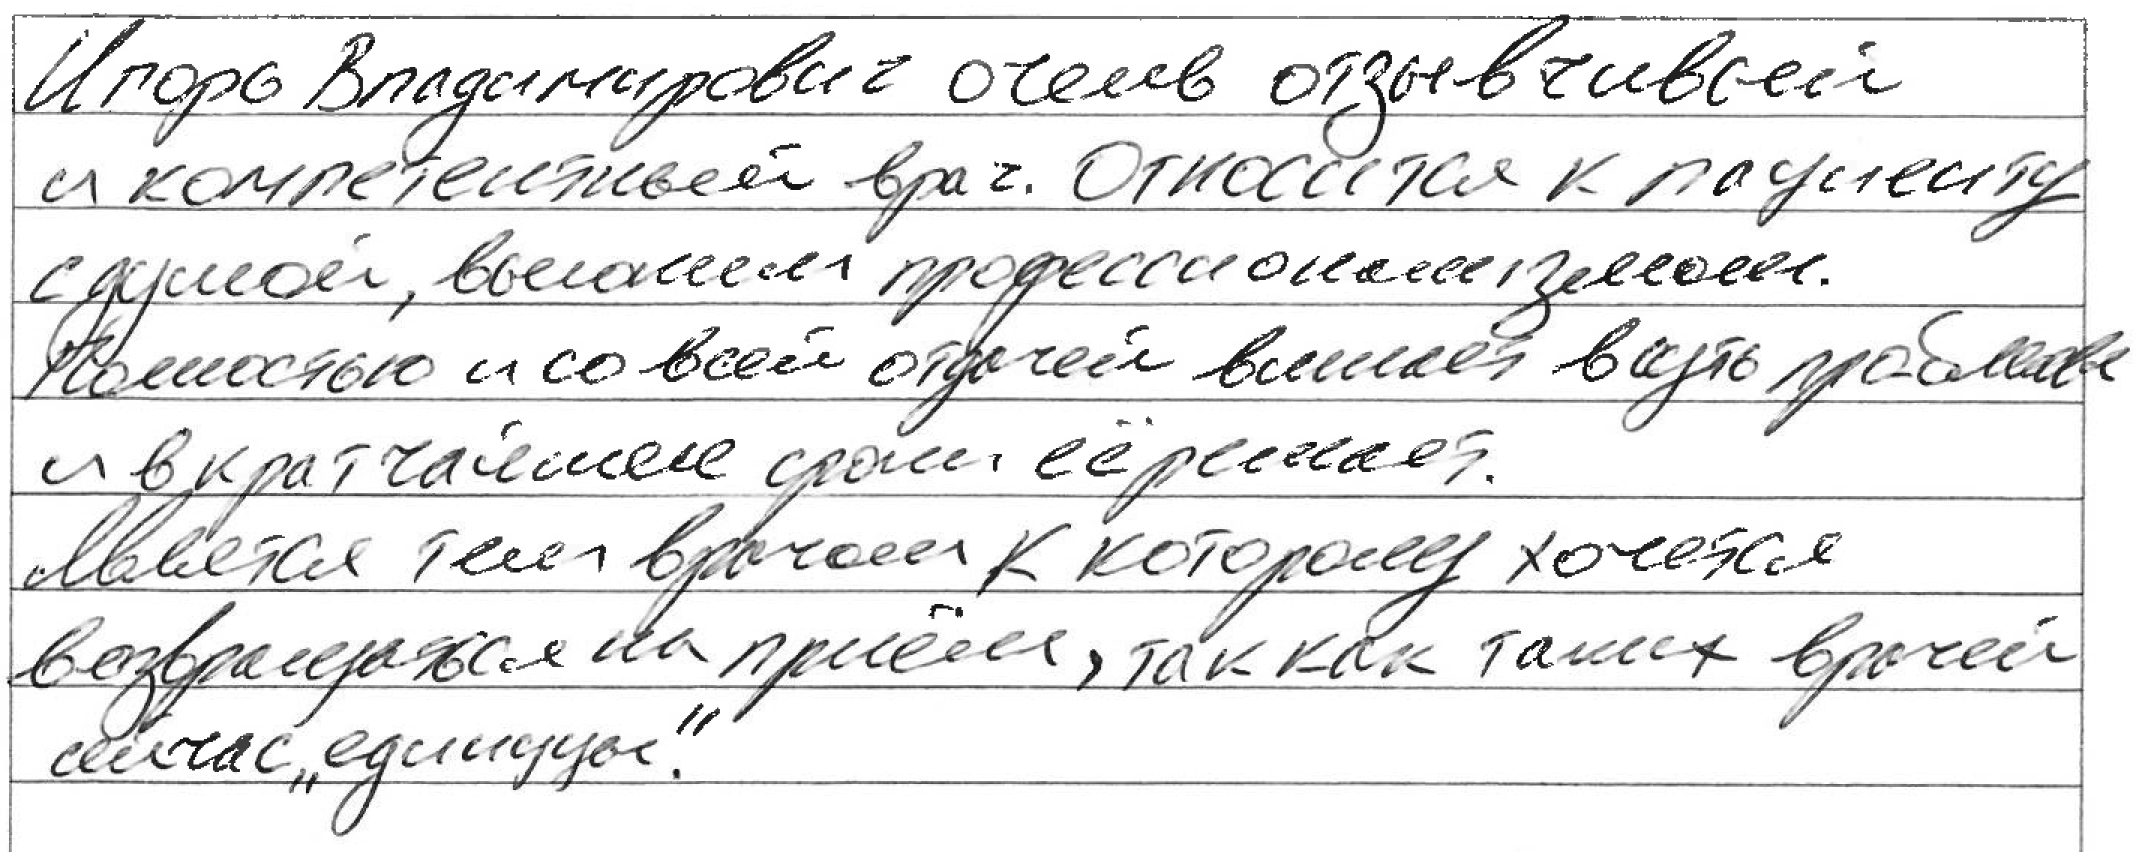 Игорь Владимирович очень отзывчивый
и компетентный врач. Относится к пациенту
с душой, высоким профессионализмом.
Полностью и со всей отдачей вникает в суть проблемы
и в кратчайшие сроки её решает.
Является тем врачом к которому хочется
возвращаться на приём, так как таких врачей
сейчас „единицы".